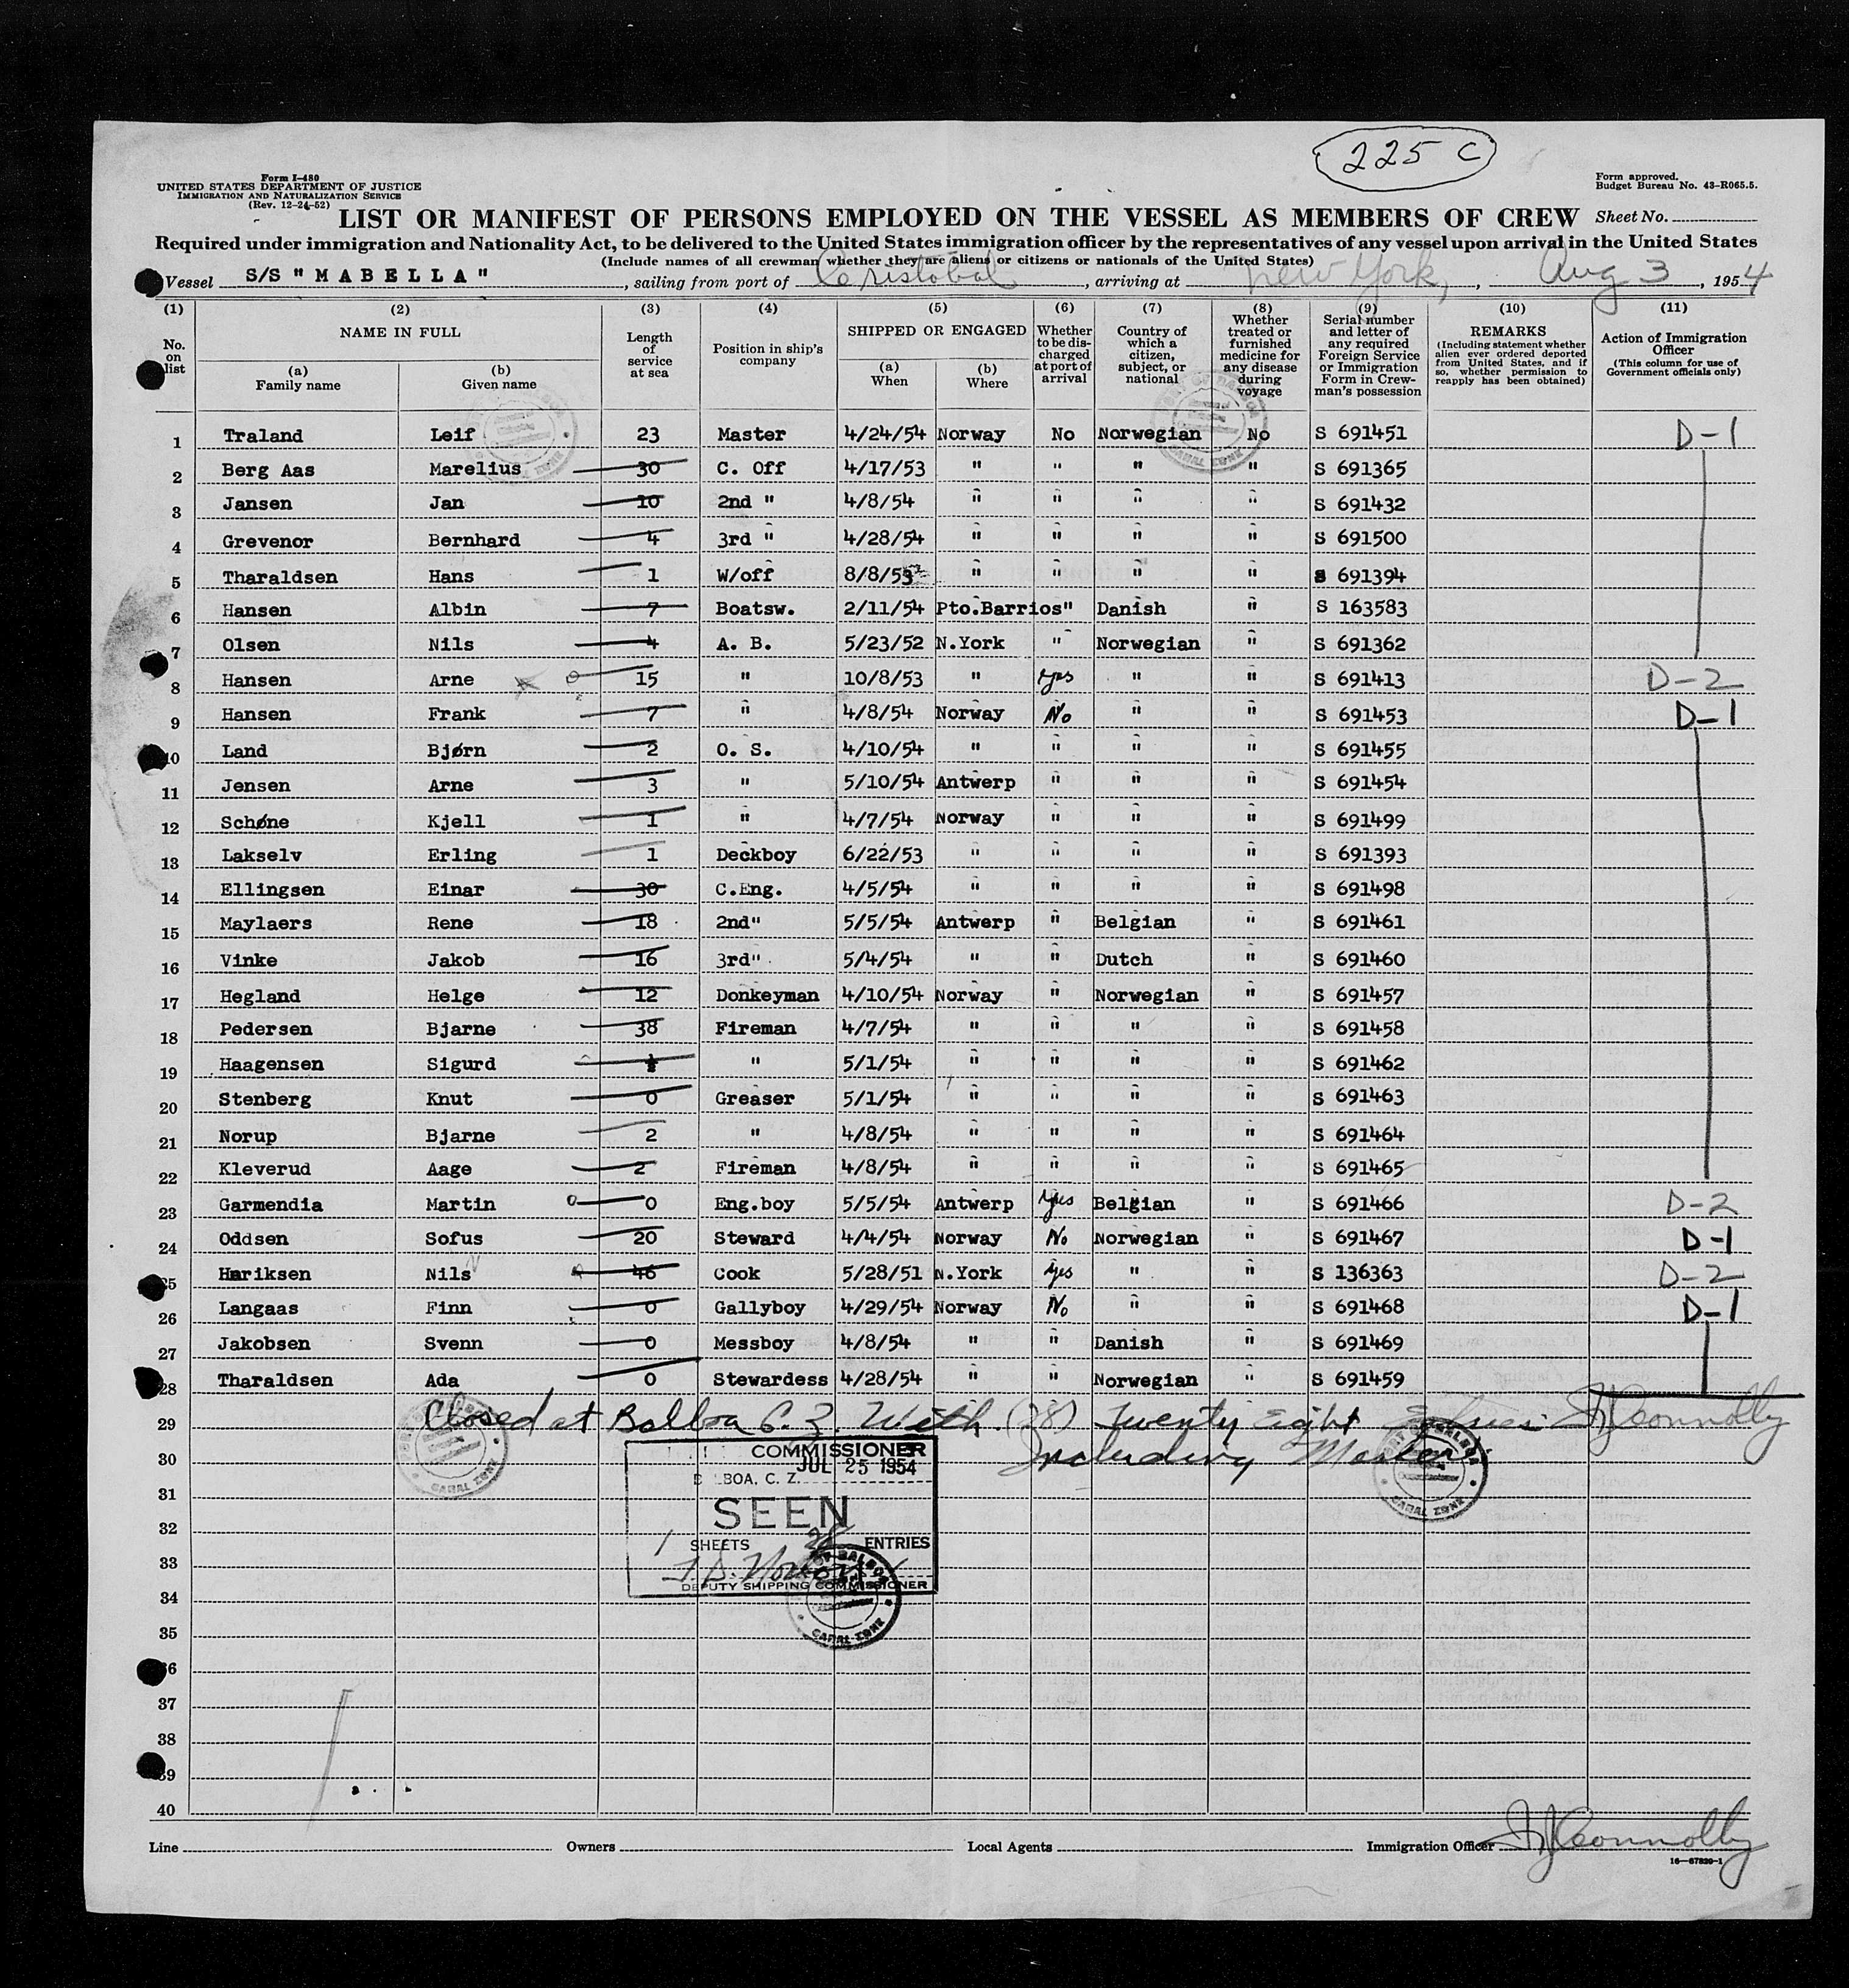 225 C
Form I-480
UNITED STATES DEPARTMENT OF JUSTICE
IMMIGRATION AND NATURALIZATION SERVICE
(Rev. 12-24-52)
Form approved.
Budget Bureau No. 43-R065.5.
LIST OR MANIFEST OF PERSONS EMPLOYED ON THE VESSEL AS MEMBERS OF CREW Sheet No.
Required under immigration and Nationality Act, to be delivered to the United States immigration officer by the representatives of any vessel upon arrival in the United States
(Include names of all crewman whether they are aliens or citizens or nationals of the United States)
Vessel S/S "MABELLA", sailing from port of Cristobal, arriving at New York, Aug 3, 1954
(1) (2) (3) (4) (5) (6) (7) (8) (9) (10) (11)
No. on list
NAME IN FULL
(a) Family name
(b) Given name
Length of service at sea
Position in ship's company
SHIPPED OR ENGAGED
(a) When
(b) Where
Whether to be discharged at port of arrival
Country of which a citizen, subject, or national
Whether treated or furnished medicine for any disease during voyage
Serial number and letter of any required Foreign Service or Immigration Form in Crewman's possession
REMARKS
(Including statement whether alien ever ordered deported from United States, and if so, whether permission to reapply has been obtained)
Action of Immigration Officer
(This column for use of Government officials only)
1 Traland Leif 23 Master 4/24/54 Norway No Norwegian No S 691451 D-1
2 Berg Aas Marelius 30 C. Off 4/17/53 " " " " S 691365
3 Jansen Jan 10 2nd " 4/8/54 " " " " S 691432
4 Grevenor Bernhard 4 3rd " 4/28/54 " " " " S 691500
5 Tharaldsen Hans 1 W/off 8/8/53 " " " " S 691394
6 Hansen Albin 7 Boatsw. 2/11/54 Pto.Barrios " Danish " S 163583
7 Olsen Nils 4 A. B. 5/23/52 N.York " Norwegian " S 691362
8 Hansen Arne 15 " 10/8/53 " yes " " S 691413 D-2
9 Hansen Frank 7 " 4/8/54 Norway No " " S 691453 D-1
10 Land Bjørn 2 O. S. 4/10/54 " " " " S 691455
11 Jensen Arne 3 " 5/10/54 Antwerp " " " S 691454
12 Schøne Kjell 1 " 4/7/54 Norway " " " S 691499
13 Lakselv Erling 1 Deckboy 6/22/53 " " " " S 691393
14 Ellingsen Einar 30 C.Eng. 4/5/54 " " " " S 691498
15 Maylaers Rene 18 2nd" 5/5/54 Antwerp " Belgian " S 691461
16 Vinke Jakob 16 3rd" 5/4/54 " " Dutch " S 691460
17 Hegland Helge 12 Donkeyman 4/10/54 Norway " Norwegian " S 691457
18 Pedersen Bjarne 38 Fireman 4/7/54 " " " " S 691458
19 Haagensen Sigurd " 5/1/54 " " " " S 691462
20 Stenberg Knut 0 Greaser 5/1/54 " " " " S 691463
21 Norup Bjarne 2 " 4/8/54 " " " " S 691464
22 Kleverud Aage 2 Fireman 4/8/54 " " " " S 691465
23 Garmendia Martin 0 Eng.boy 5/5/54 Antwerp yes Belgian " S 691466 D-2
24 Oddsen Sofus 20 Steward 4/4/54 Norway No Norwegian " S 691467 D-1
25 Hariksen Nils 46 Cook 5/28/51 N.York yes " " S 136363 D-2
26 Langaas Finn 0 Gallyboy 4/29/54 Norway No " " S 691468 D-1
27 Jakobsen Svenn 0 Messboy 4/8/54 " " Danish " S 691469
28 Tharaldsen Ada 0 Stewardess 4/28/54 " " Norwegian " S 691459
29 Closed at Balboa C.Z. With (28) Twenty Eight Connolly
30 Including Master
COMMISSIONER
JUL 25 1954
BALBOA, C. Z.
31
SEEN
32
1 SHEETS 28 ENTRIES
33
DEPUTY SHIPPING COMMISSIONER
PORT OF BALBOA
CANAL ZONE
34
35
36
37
38
39
40
Line Owners Local Agents Immigration Officer Connolly
16—67820-1